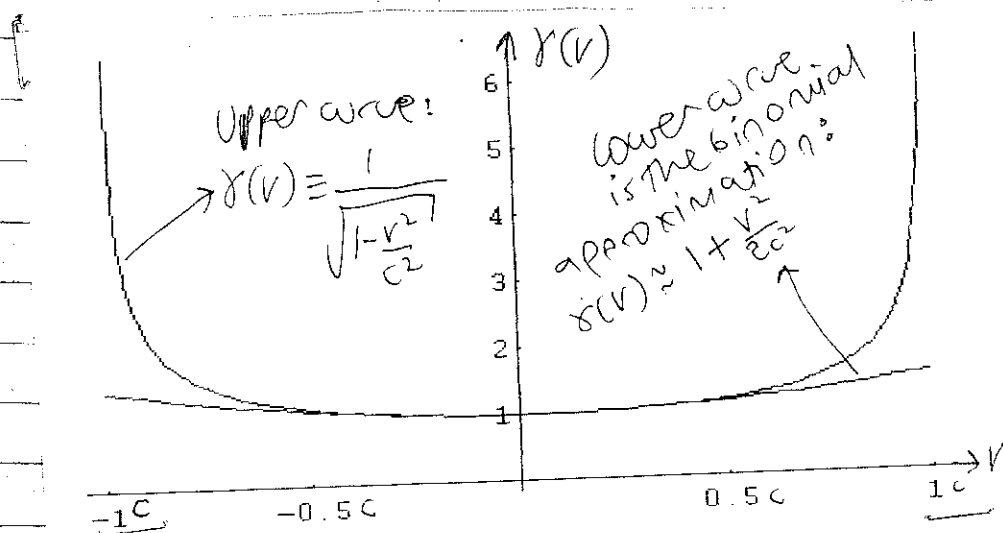 γ(v)
6
5
4
3
2
1
Upper curve:
γ(v) ≡ 1/√(1-v²/c²)
Lower curve
is the binomial
approximation:
γ(v) ≈ 1 + v²/2c²
-1c
-0.5c
0.5c
1c
v